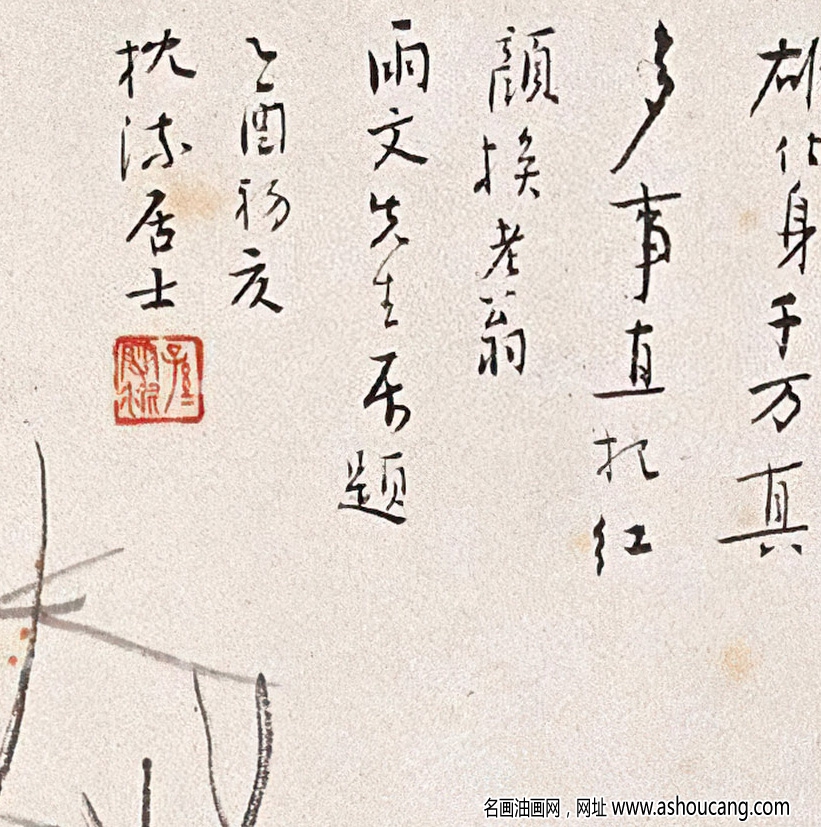 雄化身千万真
多事直把红
颜换老翁
雨文先生属题
乙酉初亥
枕流居士
名画油画网，网址 www.ashoucang.com